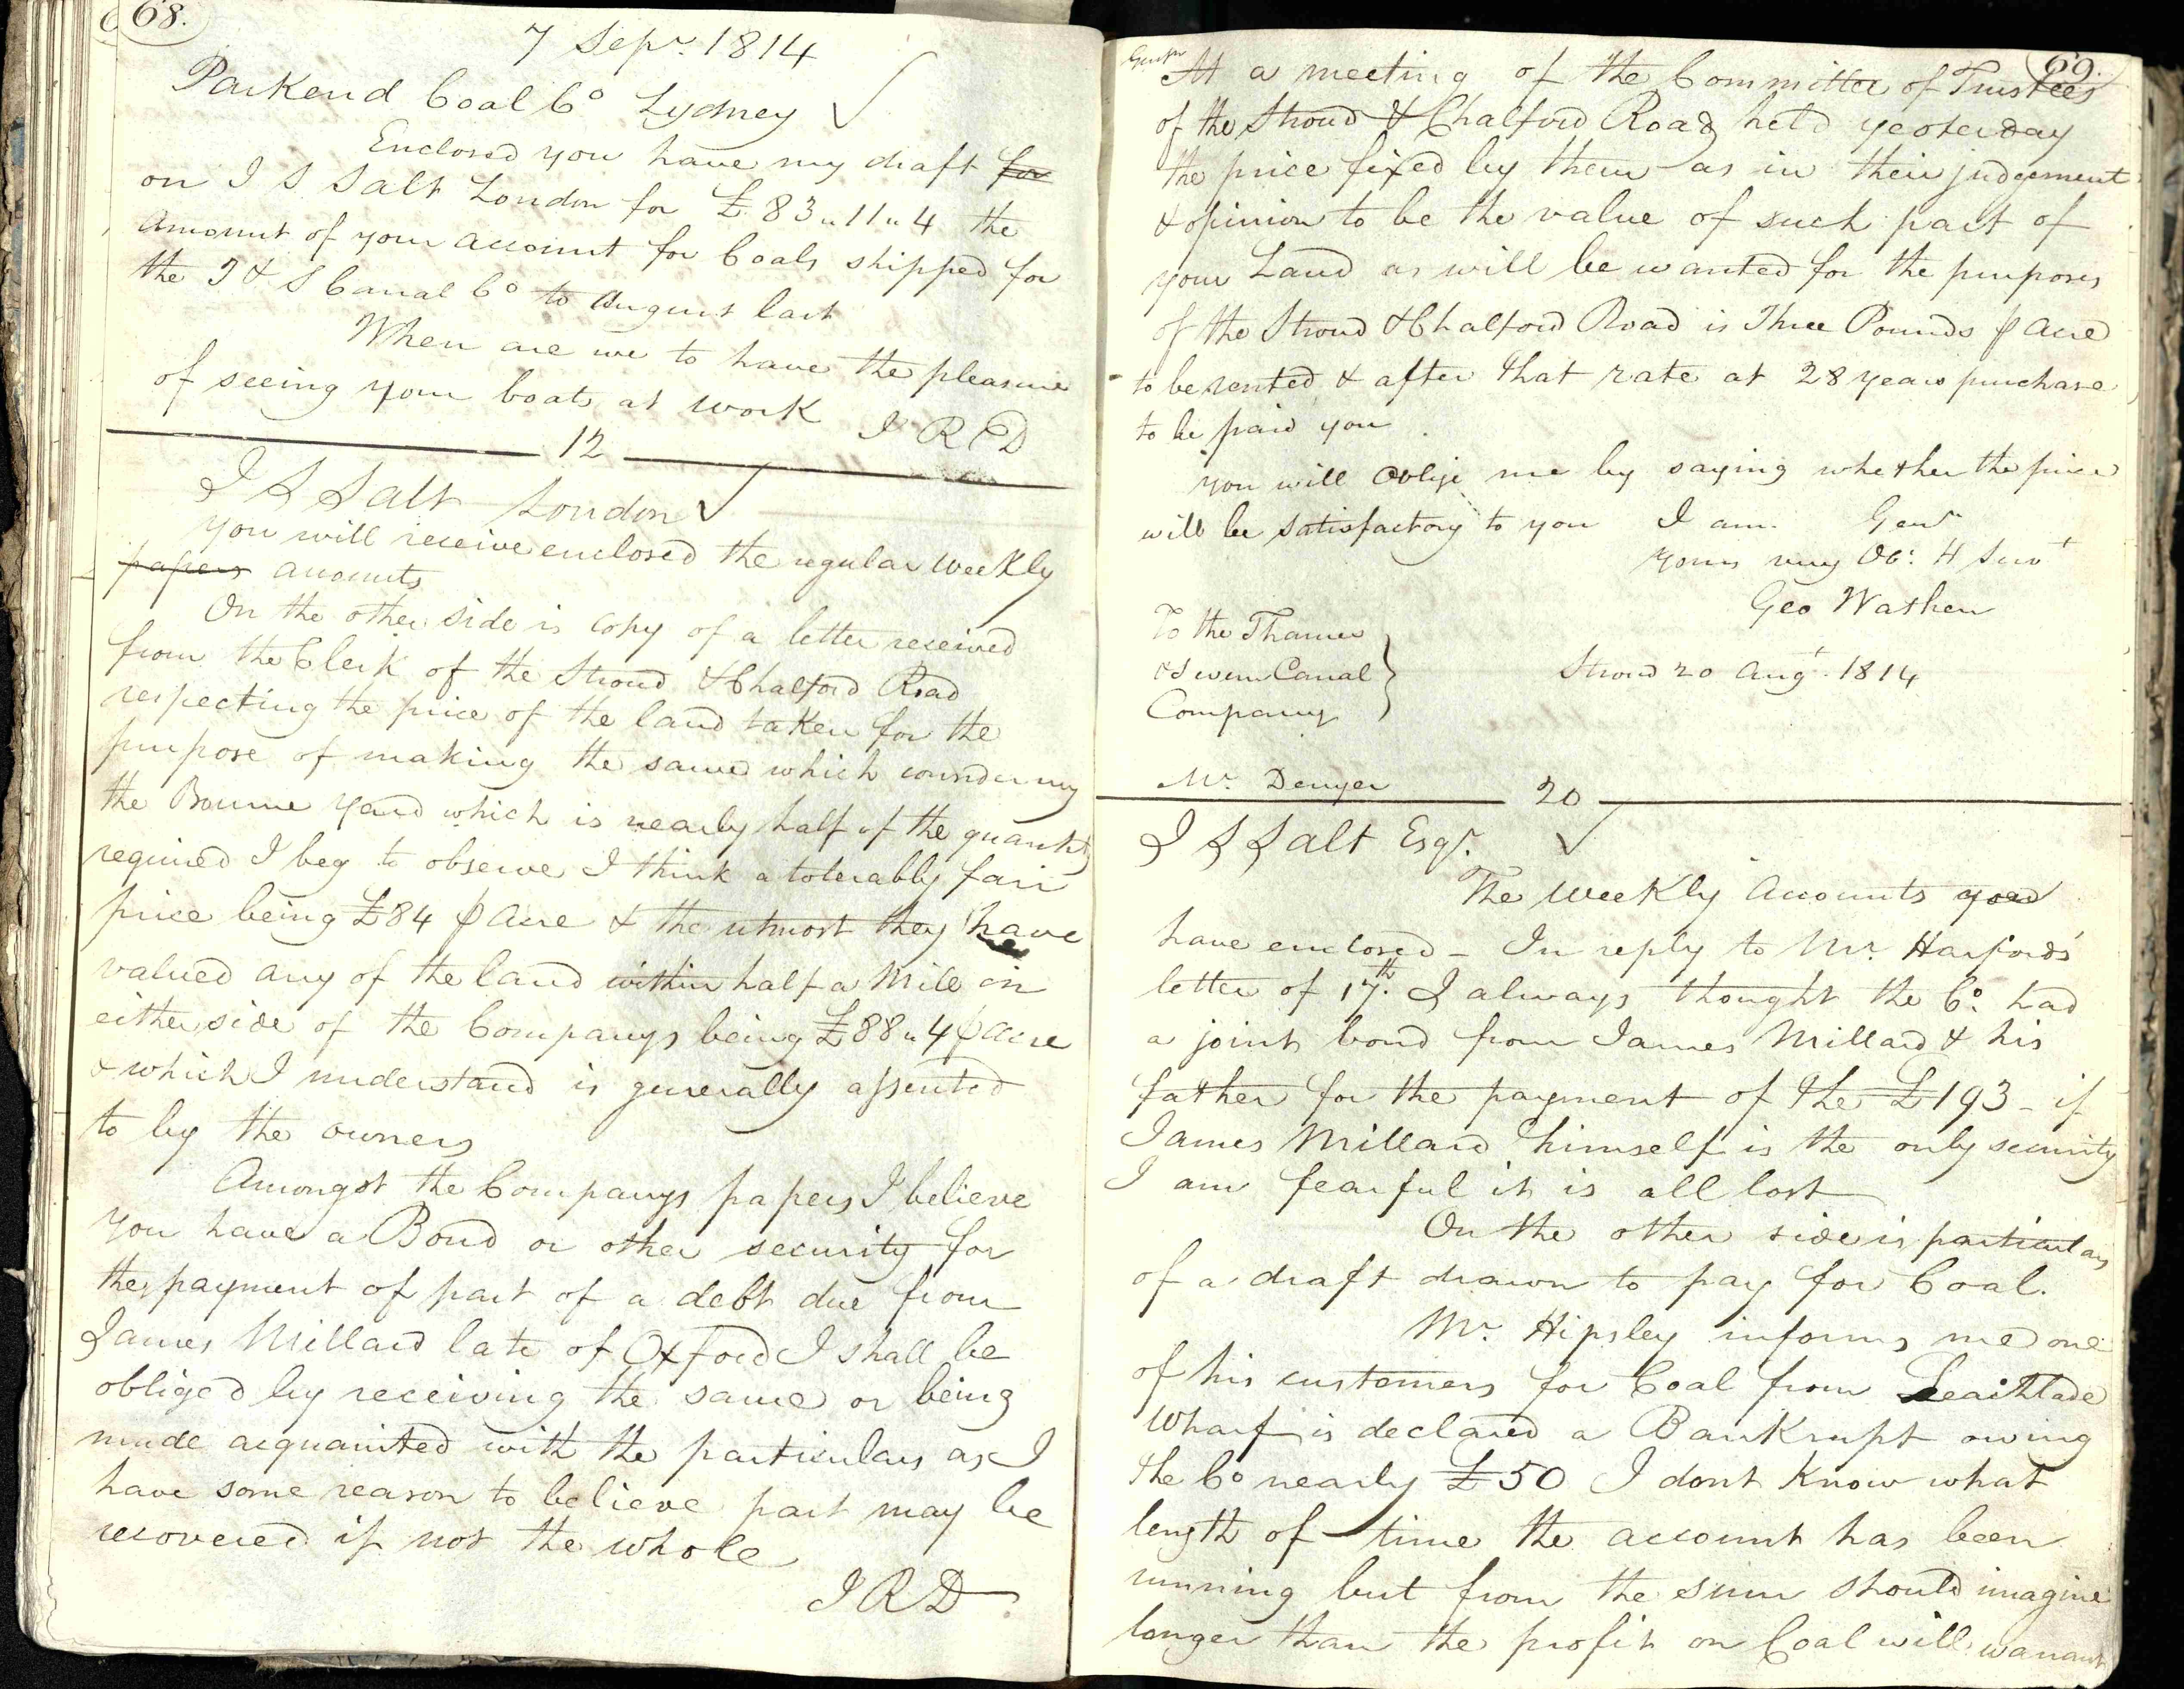 68.
7 Sepr. 1814
Parkend Coal Co Lydney
Enclosed you have my draft for
on I S Salt London for £83"11"4 the
amount of your account for Coals shipped for
the T & S Canal Co to August last
When are we to have the pleasure
of seeing your boats at work I R D
12
I S Salt London
you will receive enclosed the regular weekly
papers accounts
On the other side is copy of a letter received
from the Clerk of the Stroud & Chalford Road
respecting the price of the land taken for the
purpose of making the same which considering
the Bourne Yard which is nearly half of the quantity
required I beg to observe I think a tolerably fair
price being £84 ⅌ Acre & the utmost they have
valued any of the land within half a Mile on
either side of the Companys being £88"4 ⅌ Acre
& which I understand is generally assented
to by the owners
Amongst the Companys papers I believe
you have a Bond or other security for
the payment of part of a debt due from
James Millard late of Oxford I shall be
obliged by receiving the same or being
made acquainted with the particulars as I
have some reason to believe part may be
recovered if not the whole
I R D
69.
Gentn
At a meeting of the Committee of Trustees
of the Stroud & Chalford Road held yesterday
the price fixed by them as in their judgement
& opinion to be the value of such part of
your Land as will be wanted for the purposes
of the Stroud & Chalford Road is Three Pounds ⅌ Acre
to be rented & after that rate at 28 years purchase
to be paid you
you will oblige me by saying whether the price
will be satisfactory to you I am Genn
yours very Ob: H Servt
Geo Wathen
To the Thames
& Severn Canal
Company
Stroud 20 Augt. 1814
Mr. Denyer
20
I S Salt Esqr.
The weekly accounts you
have enclosed - In reply to Mr. Harford's
letter of 17th. I always thought the Co. had
a joint bond from James Millard & his
father for the payment of the £193 - if
James Millard himself is the only security
I am fearful it is all lost
On the other side is particulars
of a draft drawn to pay for Coal.
Mr. Hipsley informs me one
of his customers for Coal from Leachlade
Wharf is declared a Bankrupt owing
the Co nearly £50 I dont know what
length of time the account has been
running but from the sum should imagine
longer than the profit on Coal will warrant